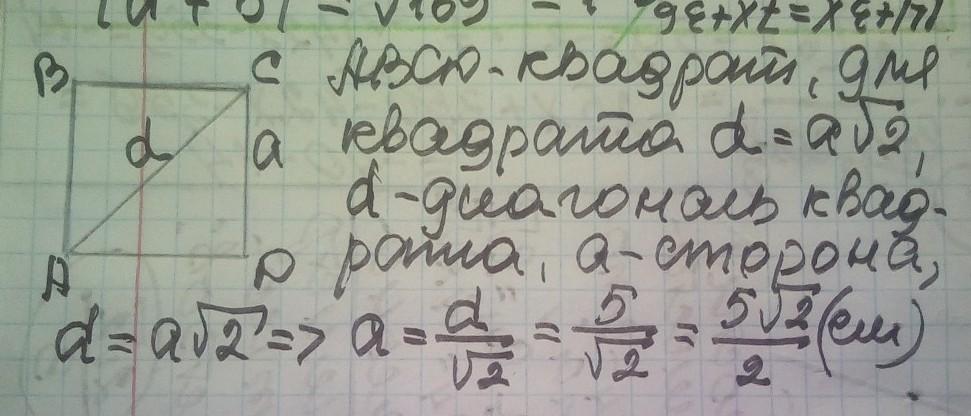 B C ABCD-квадрат, для
d a квадрата d = a√2,
d-диагональ квад-
A D рата, a-сторона,
d = a√2 => a = d/√2 = 5/√2 = 5√2/2 (см)